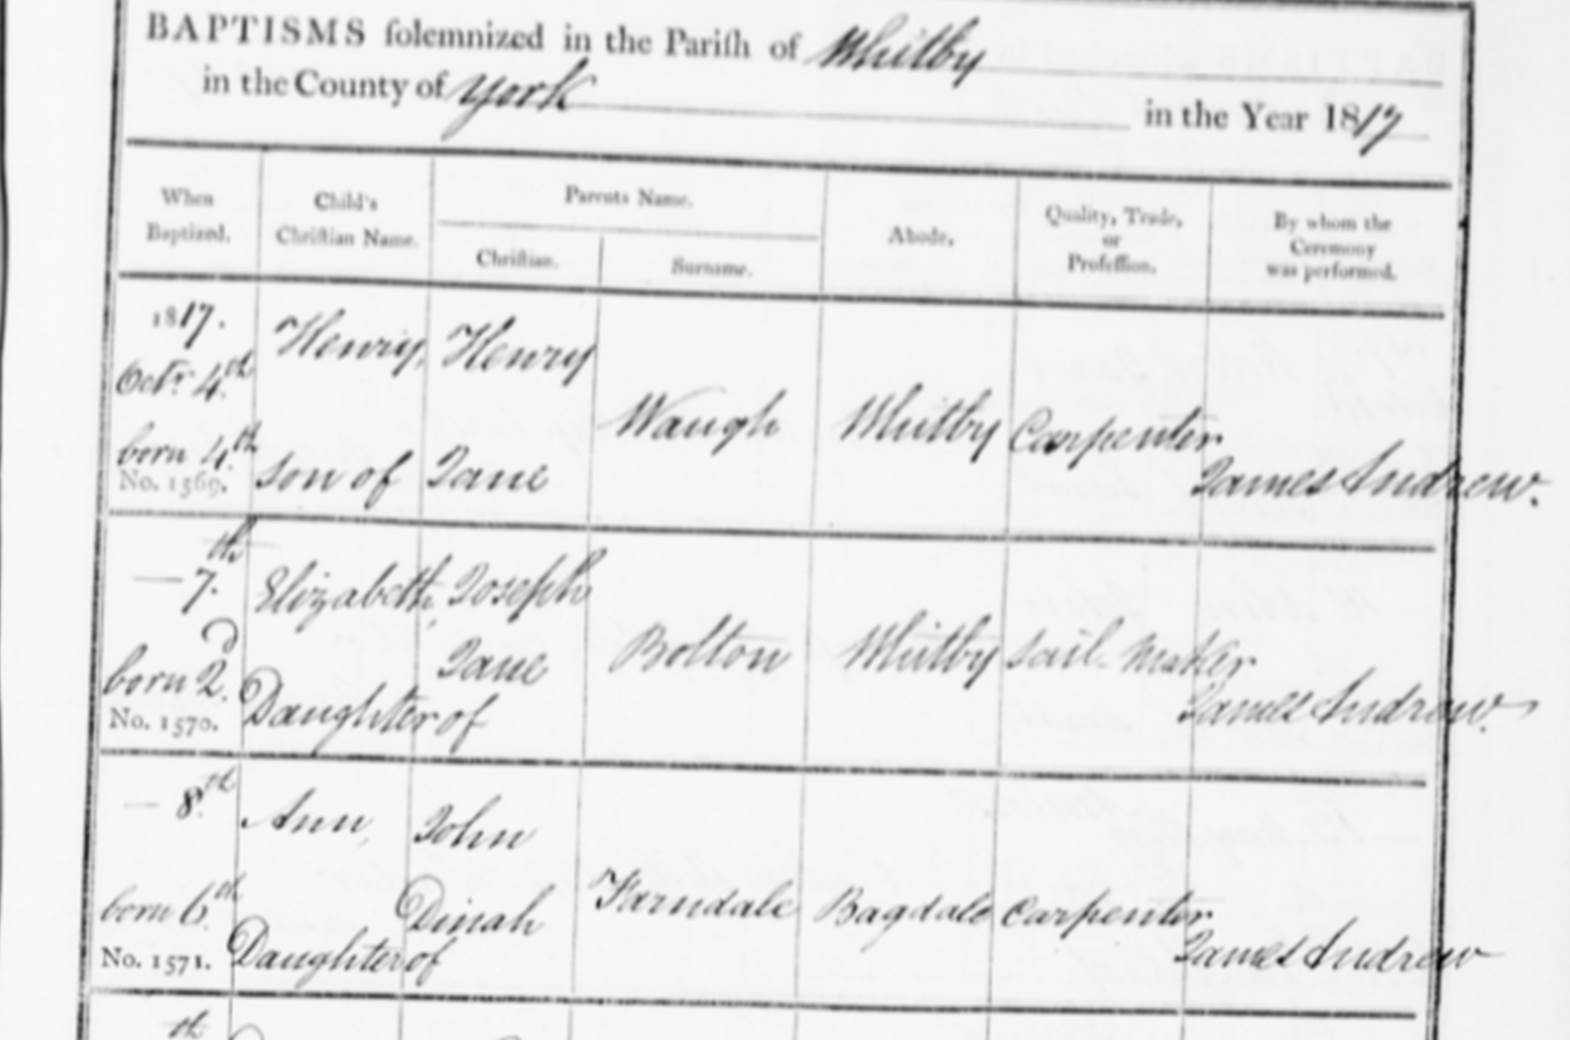 BAPTISMS solemnized in the Parish of Whitby
in the County of York in the Year 1817
When Baptized.
Child's Christian Name.
Parents Name.
Christian.
Surname.
Abode.
Quality, Trade, or Profession.
By whom the Ceremony was performed.
1817.
Octr. 4th
born 4th
No. 1569.
Henry,
son of
Henry
Jane
Waugh
Whitby
Carpenter
James Andrew.
— 7.th
born 2.d
No. 1570.
Elizabeth,
Daughter of
Joseph
Jane
Bolton
Whitby
Sail-Maker
James Andrew.
— 8.th
born 6.th
No. 1571.
Ann,
Daughter of
John
Dinah
Farndale
Bagdale
Carpenter
James Andrew
th